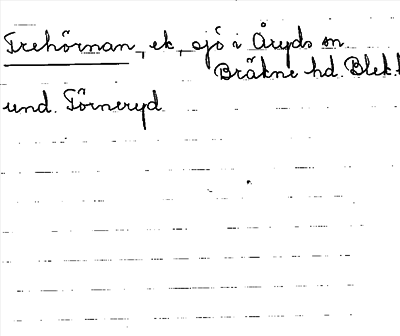 Trehörnan, ek, sjö i Åryds sn
Bräkne hd. Blek.l
und. Törneryd